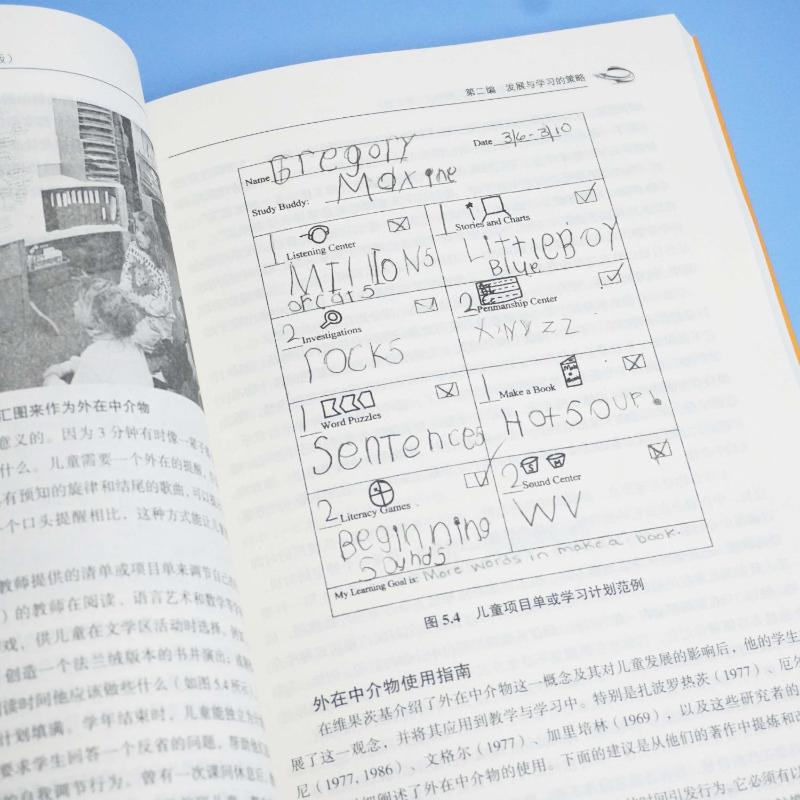 版）
汇图来作为外在中介物
意义的。因为3分钟有时像一辈子
什么。儿童需要一个外在的提醒，
有预知的旋律和结尾的歌曲，可以
个口头提醒相比，这种方式能让儿
教师提供的清单或项目单来调节自己
）的教师在阅读、语言艺术和数学等
戏，供儿童在文学区活动时选择，
创造一个法兰绒版本的书并演出，
阅读时间他应该做些什么（如图5.4所示
计划填满。学年结束时，儿童能独立
要求学生回答一个反省的问题，帮助他
自我调节行为。曾有一次课间休息后，
第二编 发展与学习的策略
Name Gregory
Date 3/6-3/10
Study Buddy: Maxine
1 Listening Center
MillioNs
of cats
1 Stories and Charts
LittleBoy
Blue
2 Investigations
rocks
2 Penmanship Center
XxYyZz
1 Word Puzzles
Sentences
1 Make a Book
Hot Soup!
2 Literacy Games
Beginning
Sounds
2 Sound Center
WV
My Learning Goal is: More words in make a book.
图 5.4 儿童项目单或学习计划范例
外在中介物使用指南
在维果茨基介绍了外在中介物这一概念及其对儿童发展的影响后，他的学生
展了这一观念，并将其应用到教学与学习中。特别是扎波罗热茨（1977）、厄尔
尼（1977,1986）、文格尔（1977）、加里培林（1969），以及这些研究者的
细阐述了外在中介物的使用。下面的建议是从他们的著作中提炼和
时间引发行为，它必须有以